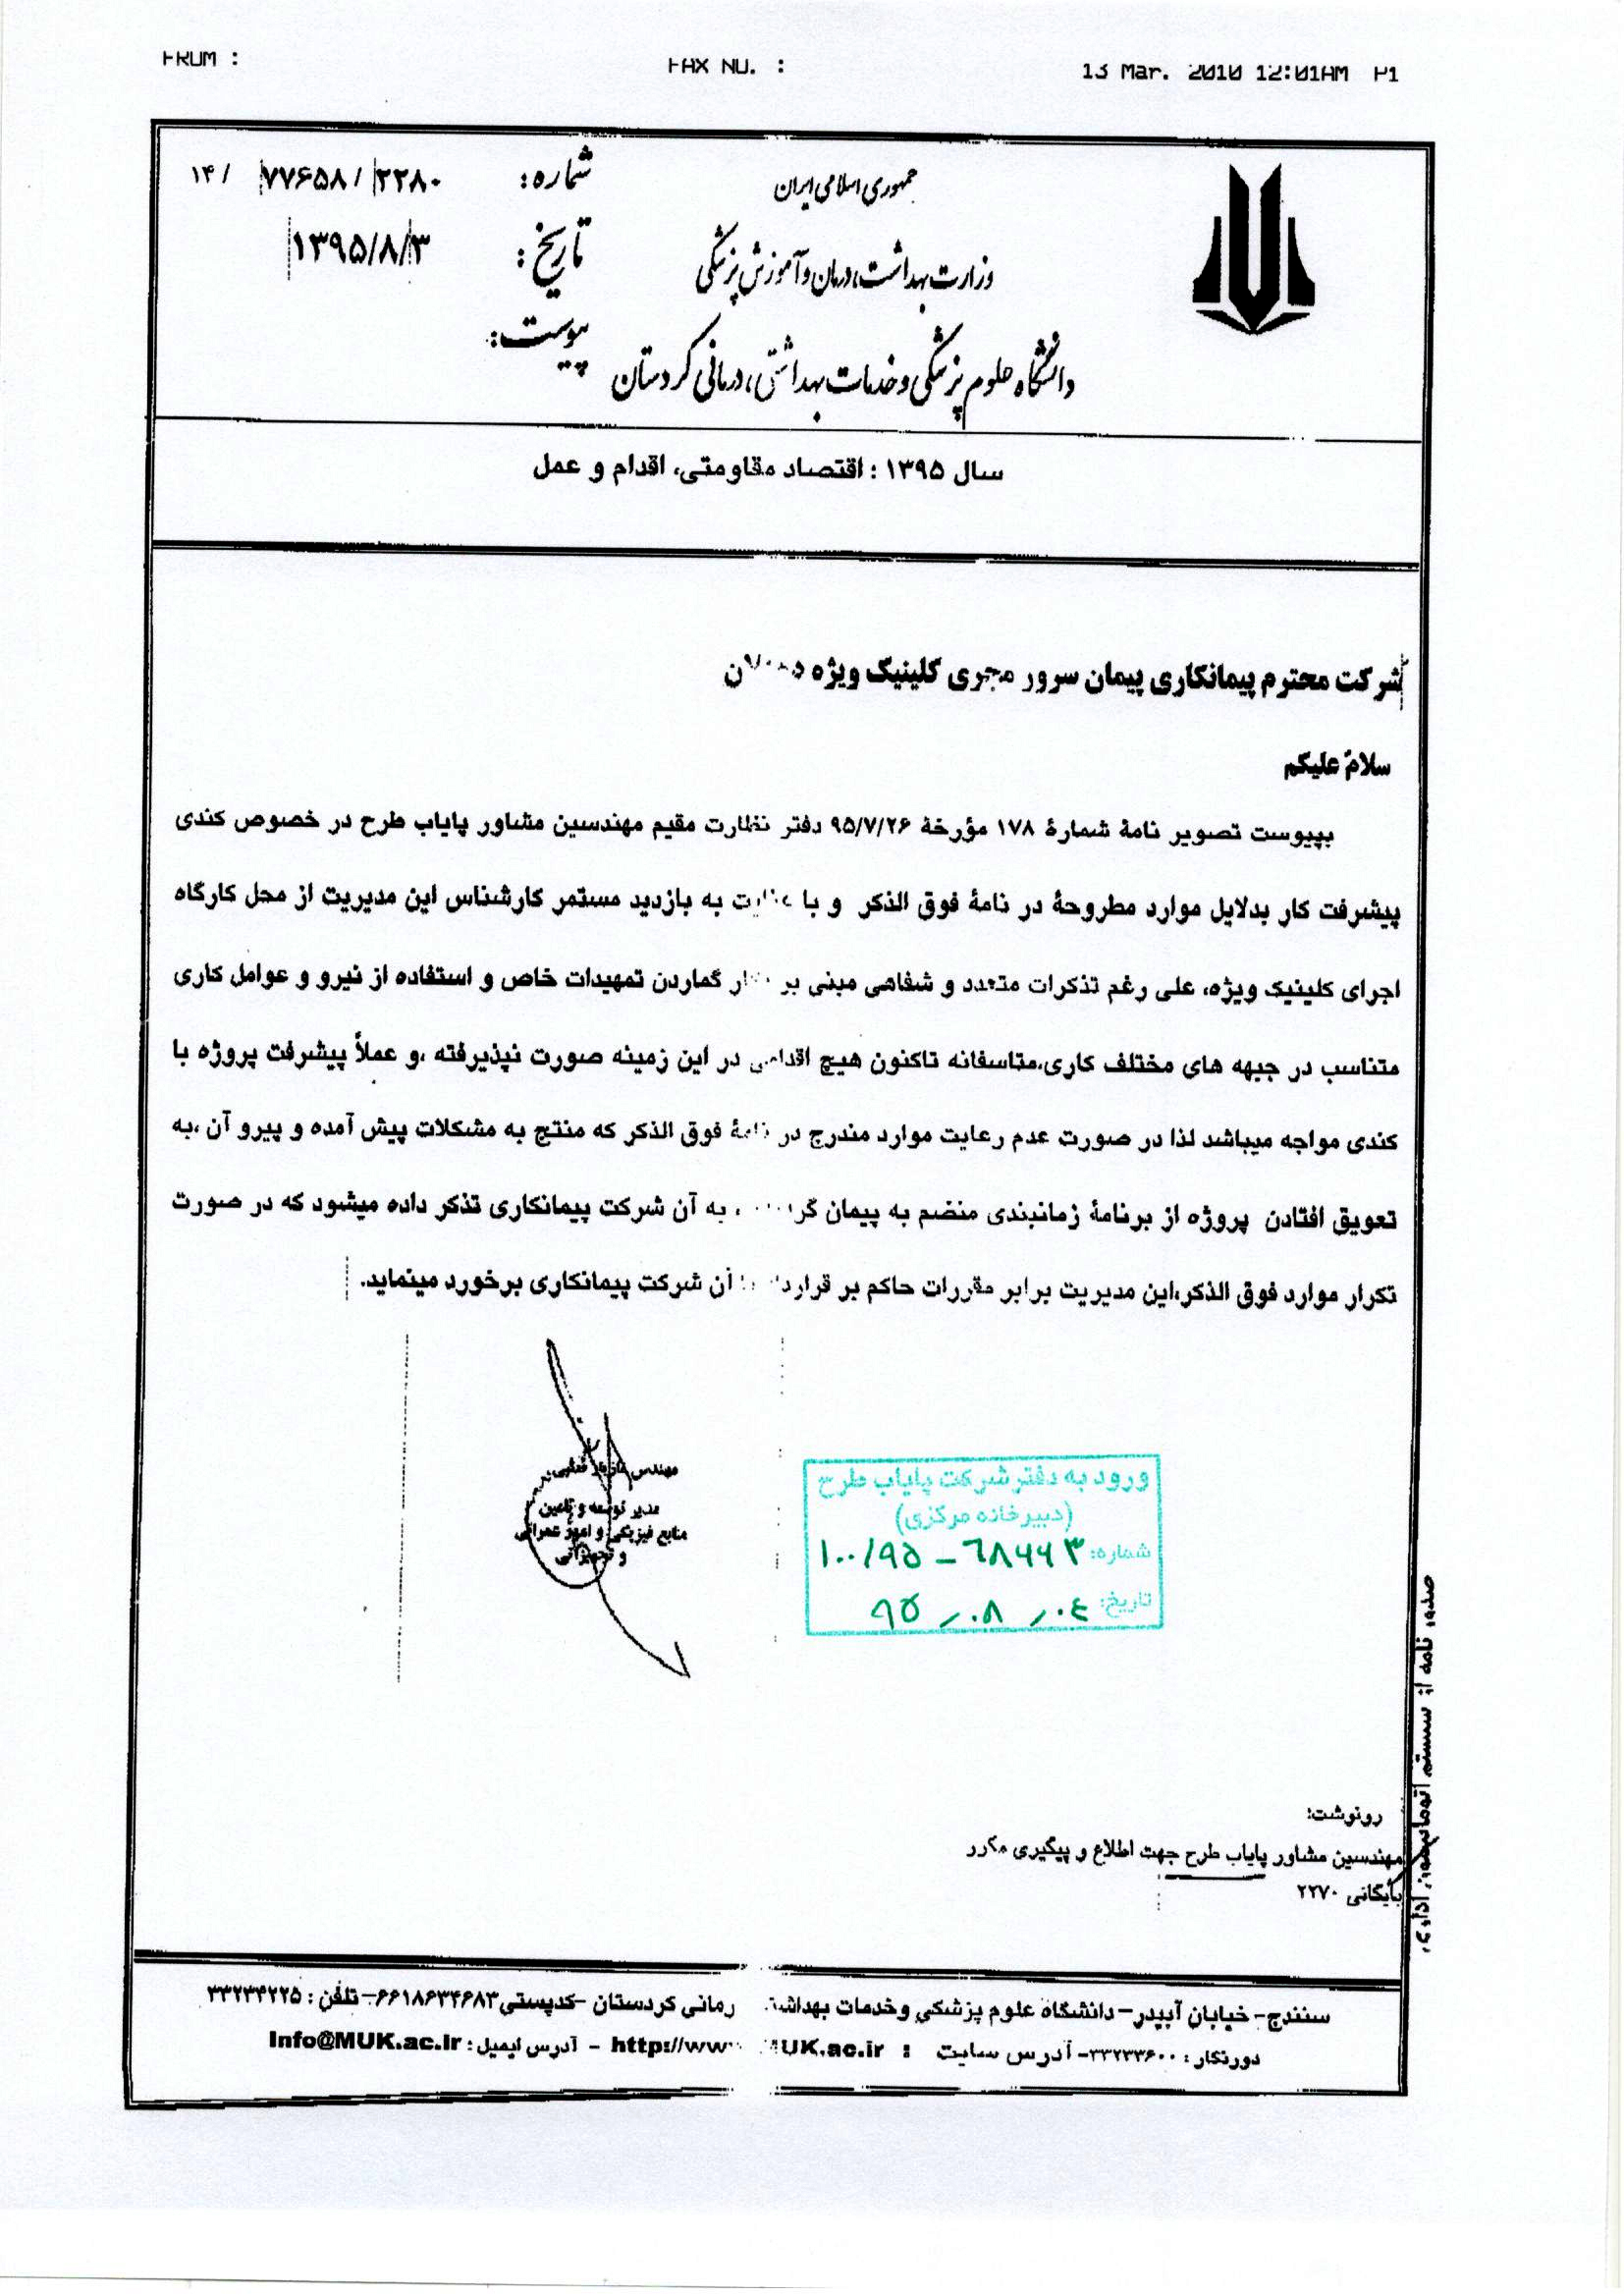 FROM :
FAX NO. :
13 Mar. 2010 12:01AM P1
جمهوری اسلامی ایران
وزارت بهداشت، درمان و آموزش پزشکی
دانشگاه علوم پزشکی و خدمات بهداشتی، درمانی کردستان
شماره: ۱۴/ ۷۷۶۵۸/ ۲۲۸۰
تاریخ: ۱۳۹۵/۸/۳
پیوست:
سال ۱۳۹۵ : اقتصاد مقاومتی، اقدام و عمل
شرکت محترم پیمانکاری پیمان سرور مجری کلینیک ویژه
سلام علیکم
بپیوست تصویر نامۀ شمارۀ ۱۷۸ مؤرخۀ ۹۵/۷/۲۶ دفتر نظارت مقیم مهندسین مشاور پایاب طرح در خصوص کندی
پیشرفت کار بدلایل موارد مطروحۀ در نامۀ فوق الذکر و با به بازدید مستمر کارشناس این مدیریت از محل کارگاه
اجرای کلینیک ویژه، علی رغم تذکرات متعدد و شفاهی مبنی بر گماردن تمهیدات خاص و استفاده از نیرو و عوامل کاری
متناسب در جبهه های مختلف کاری،متاسفانه تاکنون هیچ اقدامی در این زمینه صورت نپذیرفته ،و عملاً پیشرفت پروژه با
کندی مواجه میباشد لذا در صورت عدم رعایت موارد مندرج در نامۀ فوق الذکر که منتج به مشکلات پیش آمده و پیرو آن ،به
تعویق افتادن پروژه از برنامۀ زمانبندی منضم به پیمان ، به آن شرکت پیمانکاری تذکر داده میشود که در صورت
تکرار موارد فوق الذکر،این مدیریت برابر مقررات حاکم بر قرارداد با آن شرکت پیمانکاری برخورد مینماید.
مهندس
مدیر توسعه و تامین
منابع فیزیکی و امور عمرانی
و تجهیزاتی
ورود به دفتر شرکت پایاب طرح
(دبیرخانه مرکزی)
شماره: ۱۰۰/۹۵ – ۶۸۶۶۳
تاریخ: ۹۵ / ۰۸ / ۰۴
صدور نامه از سیستم اتوماسیون اداری
رونوشت:
مهندسین مشاور پایاب طرح جهت اطلاع و پیگیری مکرر
بایگانی ۲۲۷۰
سنندج- خیابان آبیدر– دانشگاه علوم پزشکی وخدمات بهداشتی درمانی کردستان –کدپستی۶۶۱۸۶۳۴۶۸۳– تلفن : ۳۳۲۳۴۲۲۵
دورنگار : ۳۳۲۳۳۶۰۰- آدرس سایت : http://www.MUK.ac.ir – آدرس ایمیل : Info@MUK.ac.ir